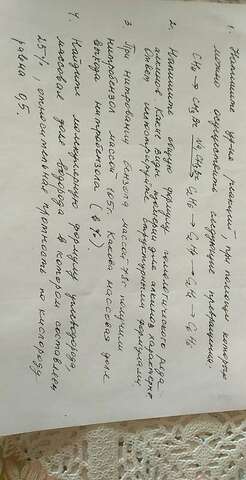 1. Напишите ур-ия реакций при помощи которых
можно осуществить следующие превращения:
CH4 → CH3Br → C2H6 → C2H4 → C2H2 → C6H6
2. Напишите общую формулу гомологического ряда
алкинов. Какие виды изомерии для алкинов характерны
Ответ иллюстрируйте структурными формулами.
3. При нитровании бензола массой 78г. получили
нитробензол массой 105г. Какова массовая доля
выхода нитробензола (в %).
4. Найдите молекулярную формулу углеводорода,
массовая доля водорода в котором составляет
25%, относительная плотность по кислороду
равна 0,5.